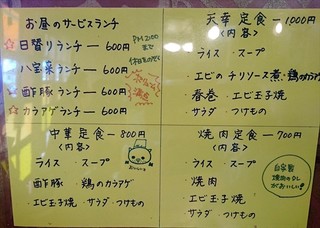 お昼のサービスランチ
PM.2:00
まで
休日をのぞく
☆日替りランチ ー 600円
☆八宝菜ランチ ー 600円
☆酢豚ランチ ー 600円
☆カラアゲランチ ー 600円
満点
天華定食 ー 1000円
(内容)
・ライス ・スープ
・エビのチリソース煮・鶏のカラアゲ
・春巻 ・エビ玉子焼
・サラダ ・つけもの
中華定食 ー 800円
(内容)
ライス ・スープ
酢豚 ・鶏のカラアゲ
・エビ玉子焼 ・サラダ ・つけもの
焼肉定食 ー 700円
(内容)
・ライス ・スープ
・焼肉
・エビ玉子焼
・サラダ ・つけもの
自家製
焼肉のタレ
がおいしい!